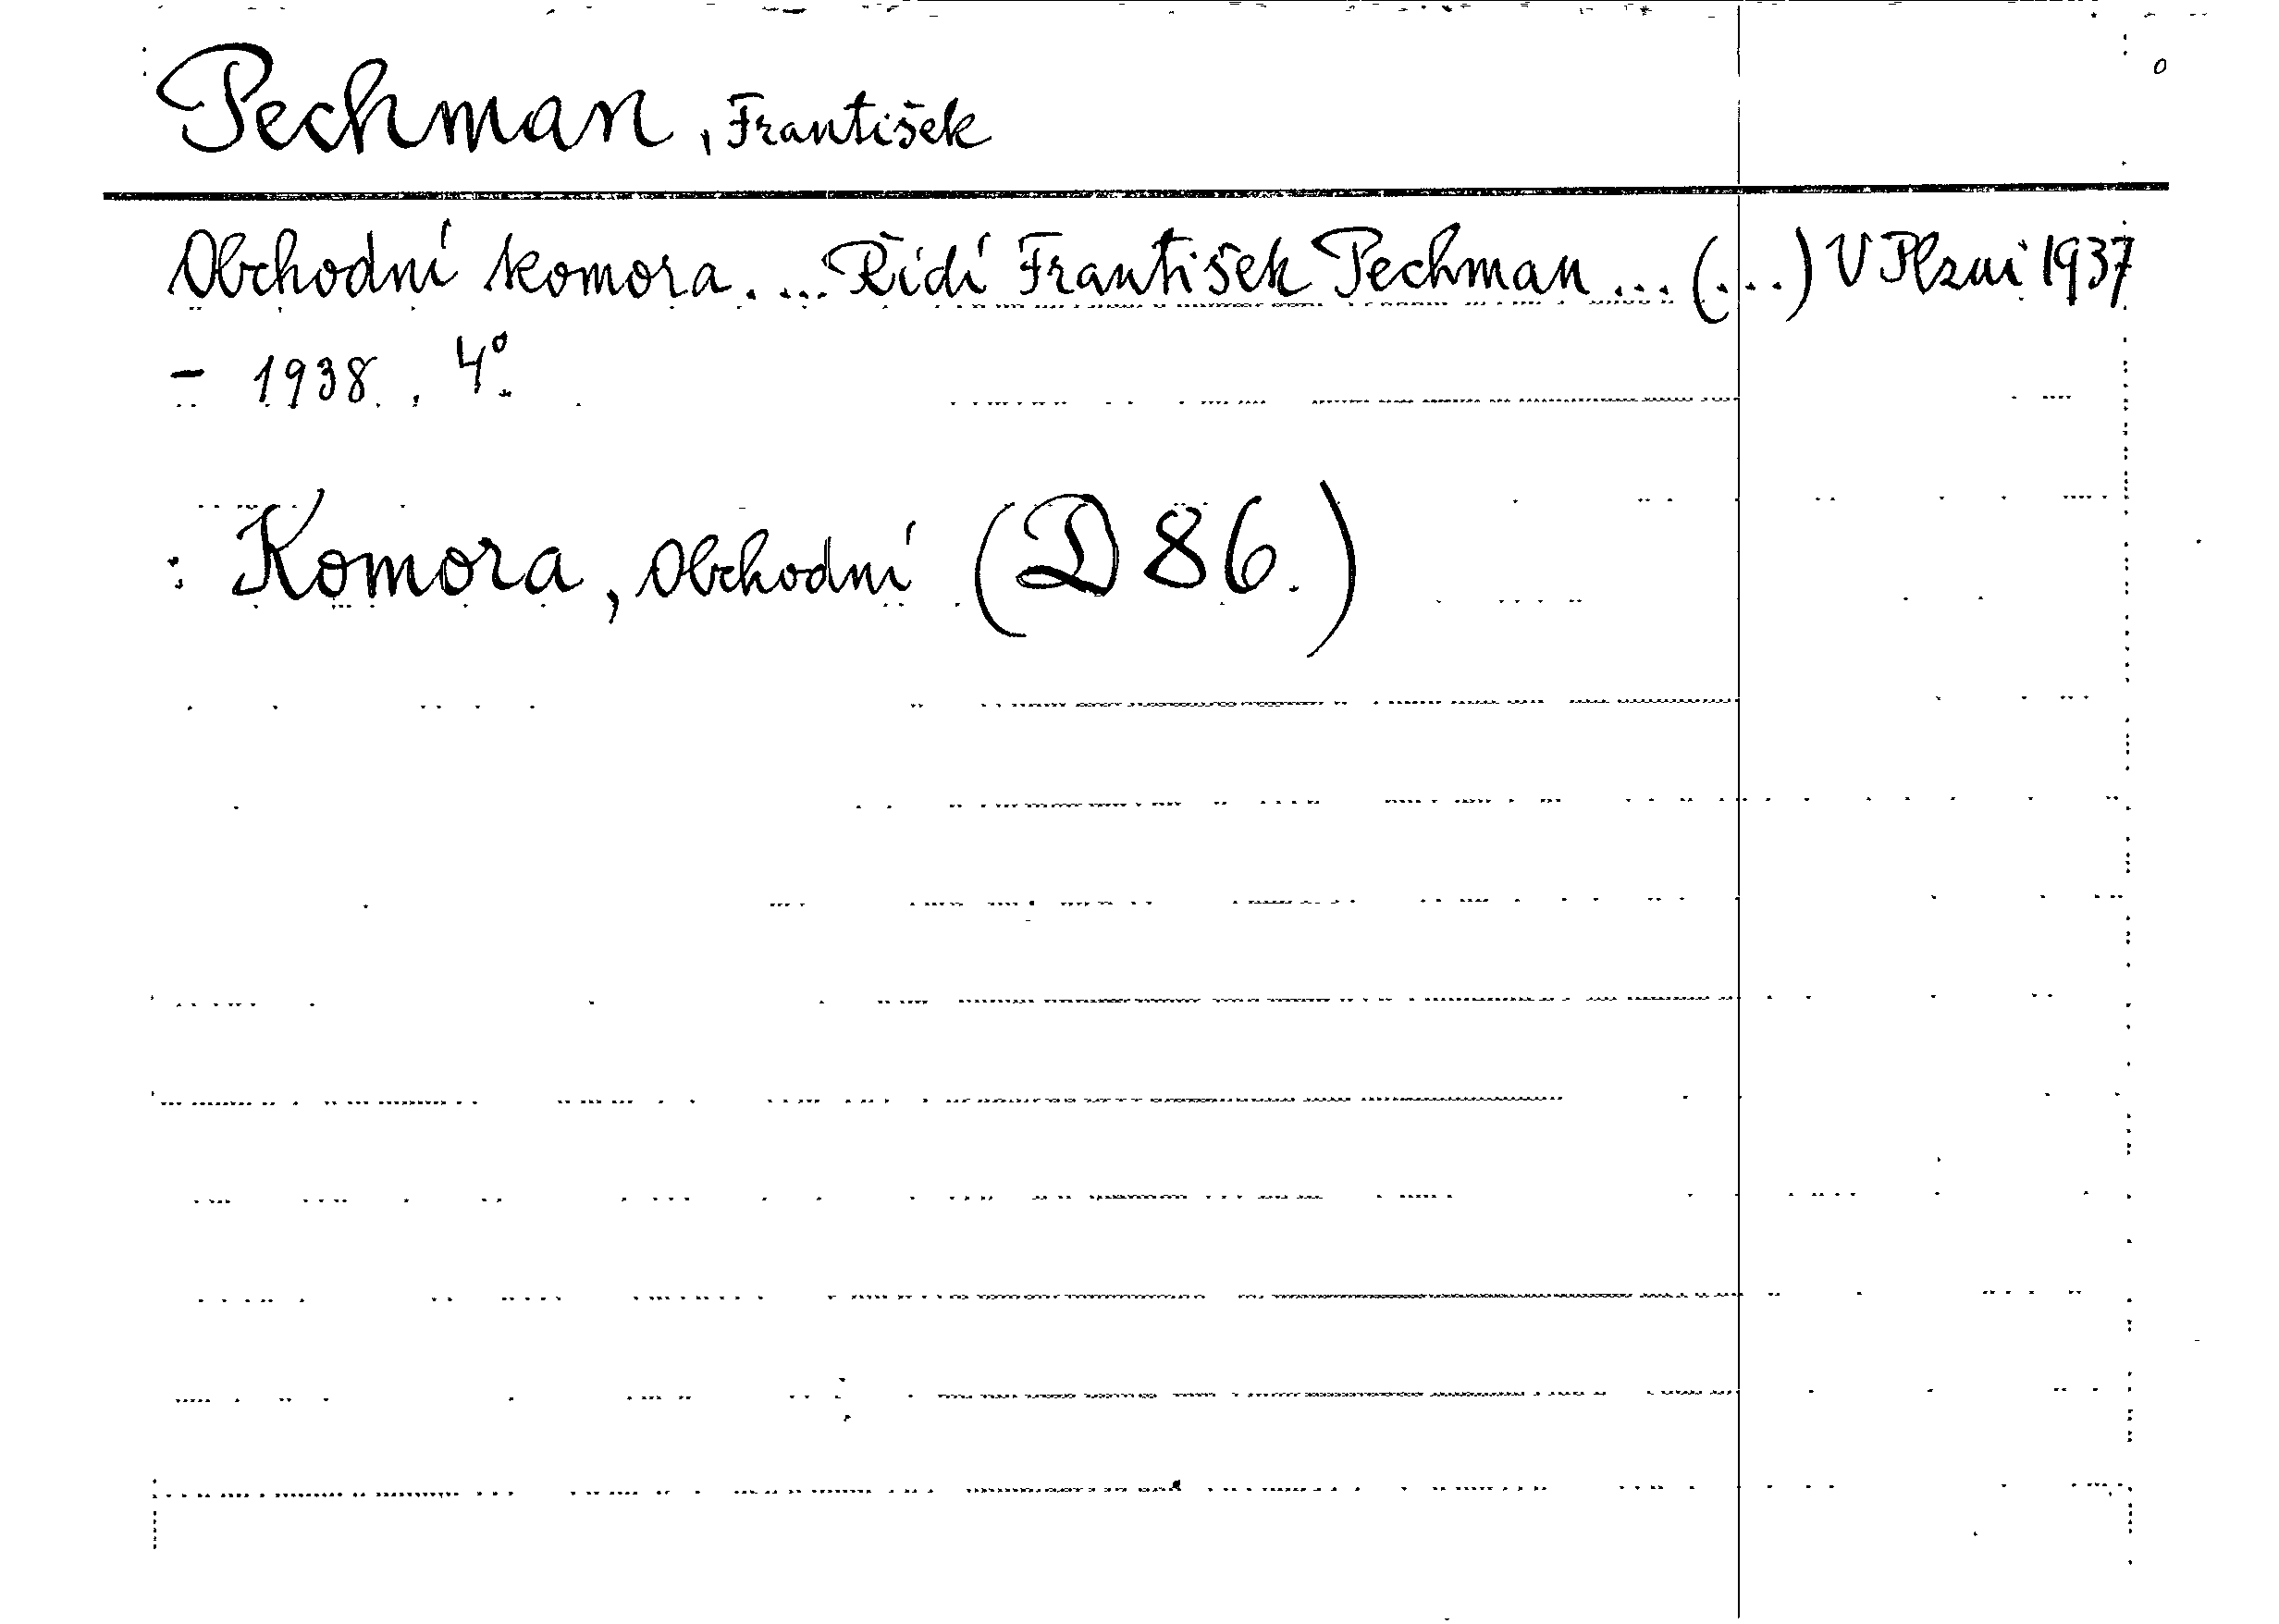 Pechman, František
Obchodní komora. ... Řídí František Pechman ... (...) V Plzni 1937
- 1938. 4°.
: Komora, Obchodní (D 86.)